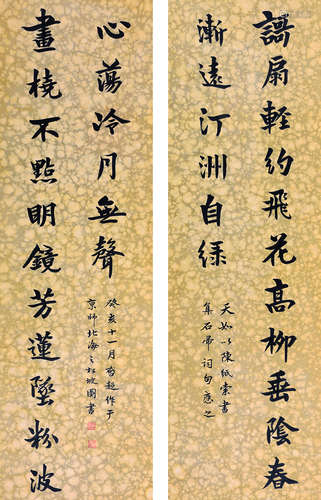 謌扇輕約飛花高柳垂陰春
漸遠汀洲自綠
天如以陳紙索書
集石帚詞句應之
畫橈不點明鏡芳蓮墜粉波
心蕩冷月無聲
癸亥十一月啓超作于
京師北海之松坡圖書